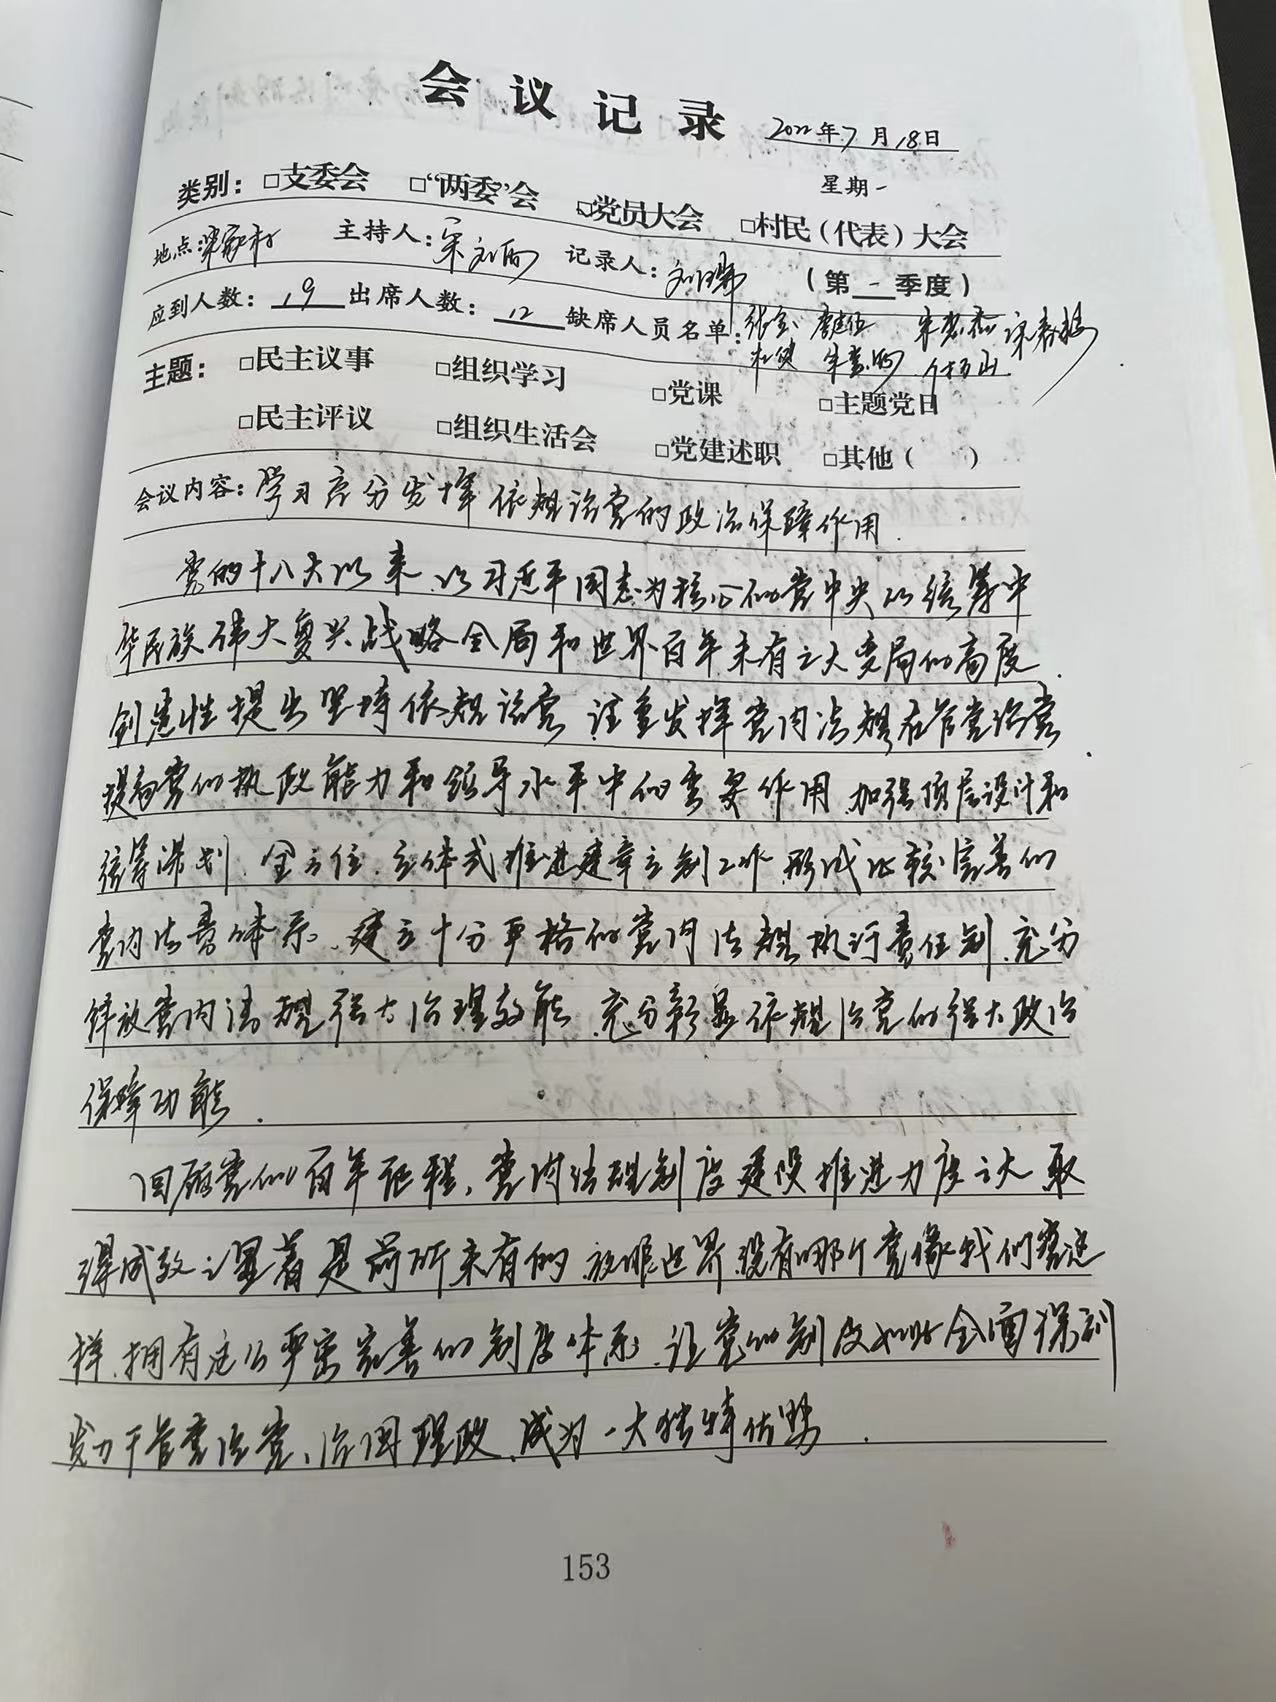 会议记录 2022年7月18日
星期一
类别：□支委会 □“两委”会 ☑党员大会 □村民（代表）大会
地点：宋家村 主持人：宋 记录人：刘 （第一季度）
应到人数：19 出席人数：12 缺席人员名单：
主题：□民主议事 □组织学习 □党课 □主题党日
□民主评议 □组织生活会 □党建述职 □其他（ ）
会议内容：学习充分发挥依规治党的政治保障作用.
党的十八大以来、以习近平同志为核心的党中央以统筹中
华民族伟大复兴战略全局和世界百年未有之大变局的高度、
创造性提出坚持依规治党 注重发挥党内法规在管党治党、
提高党的执政能力和领导水平中的重要作用 加强顶层设计和
统筹谋划、全方位、立体式推进建章立制工作 形成比较完善的
党内法规体系、建立十分严格的党内法规执行责任制、充分
释放党内法规强大治理效能、充分彰显依规治党的强大政治
保障功能.
回顾党的百年征程、党内法规制度建设推进力度之大 取
得成效之显著是前所未有的 放眼世界、没有哪个党像我们党这
样、拥有这么严密完善的制度体系、让党的制度如此全面深刻
发力于管党治党、治国理政、成为一大独特优势.
153